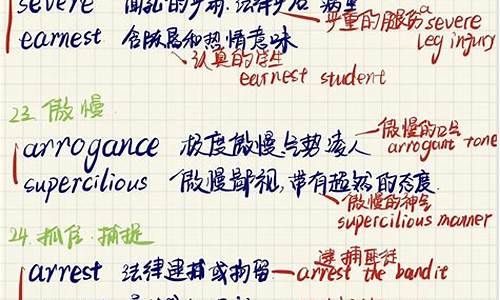 severe
严重的腿伤 a severe
leg injury
earnest 含有严肃和热情意味
认真的学生
earnest student
23. 傲慢
arrogance 极度傲慢、气势凌人
傲慢的口气
arrogant tone
supercilious 傲慢鄙视,带有超然的态度
傲慢的神气
supercilious manner
24. 抓住.捕捉
arrest 法律逮捕或拘留
逮捕匪徒
arrest the bandit